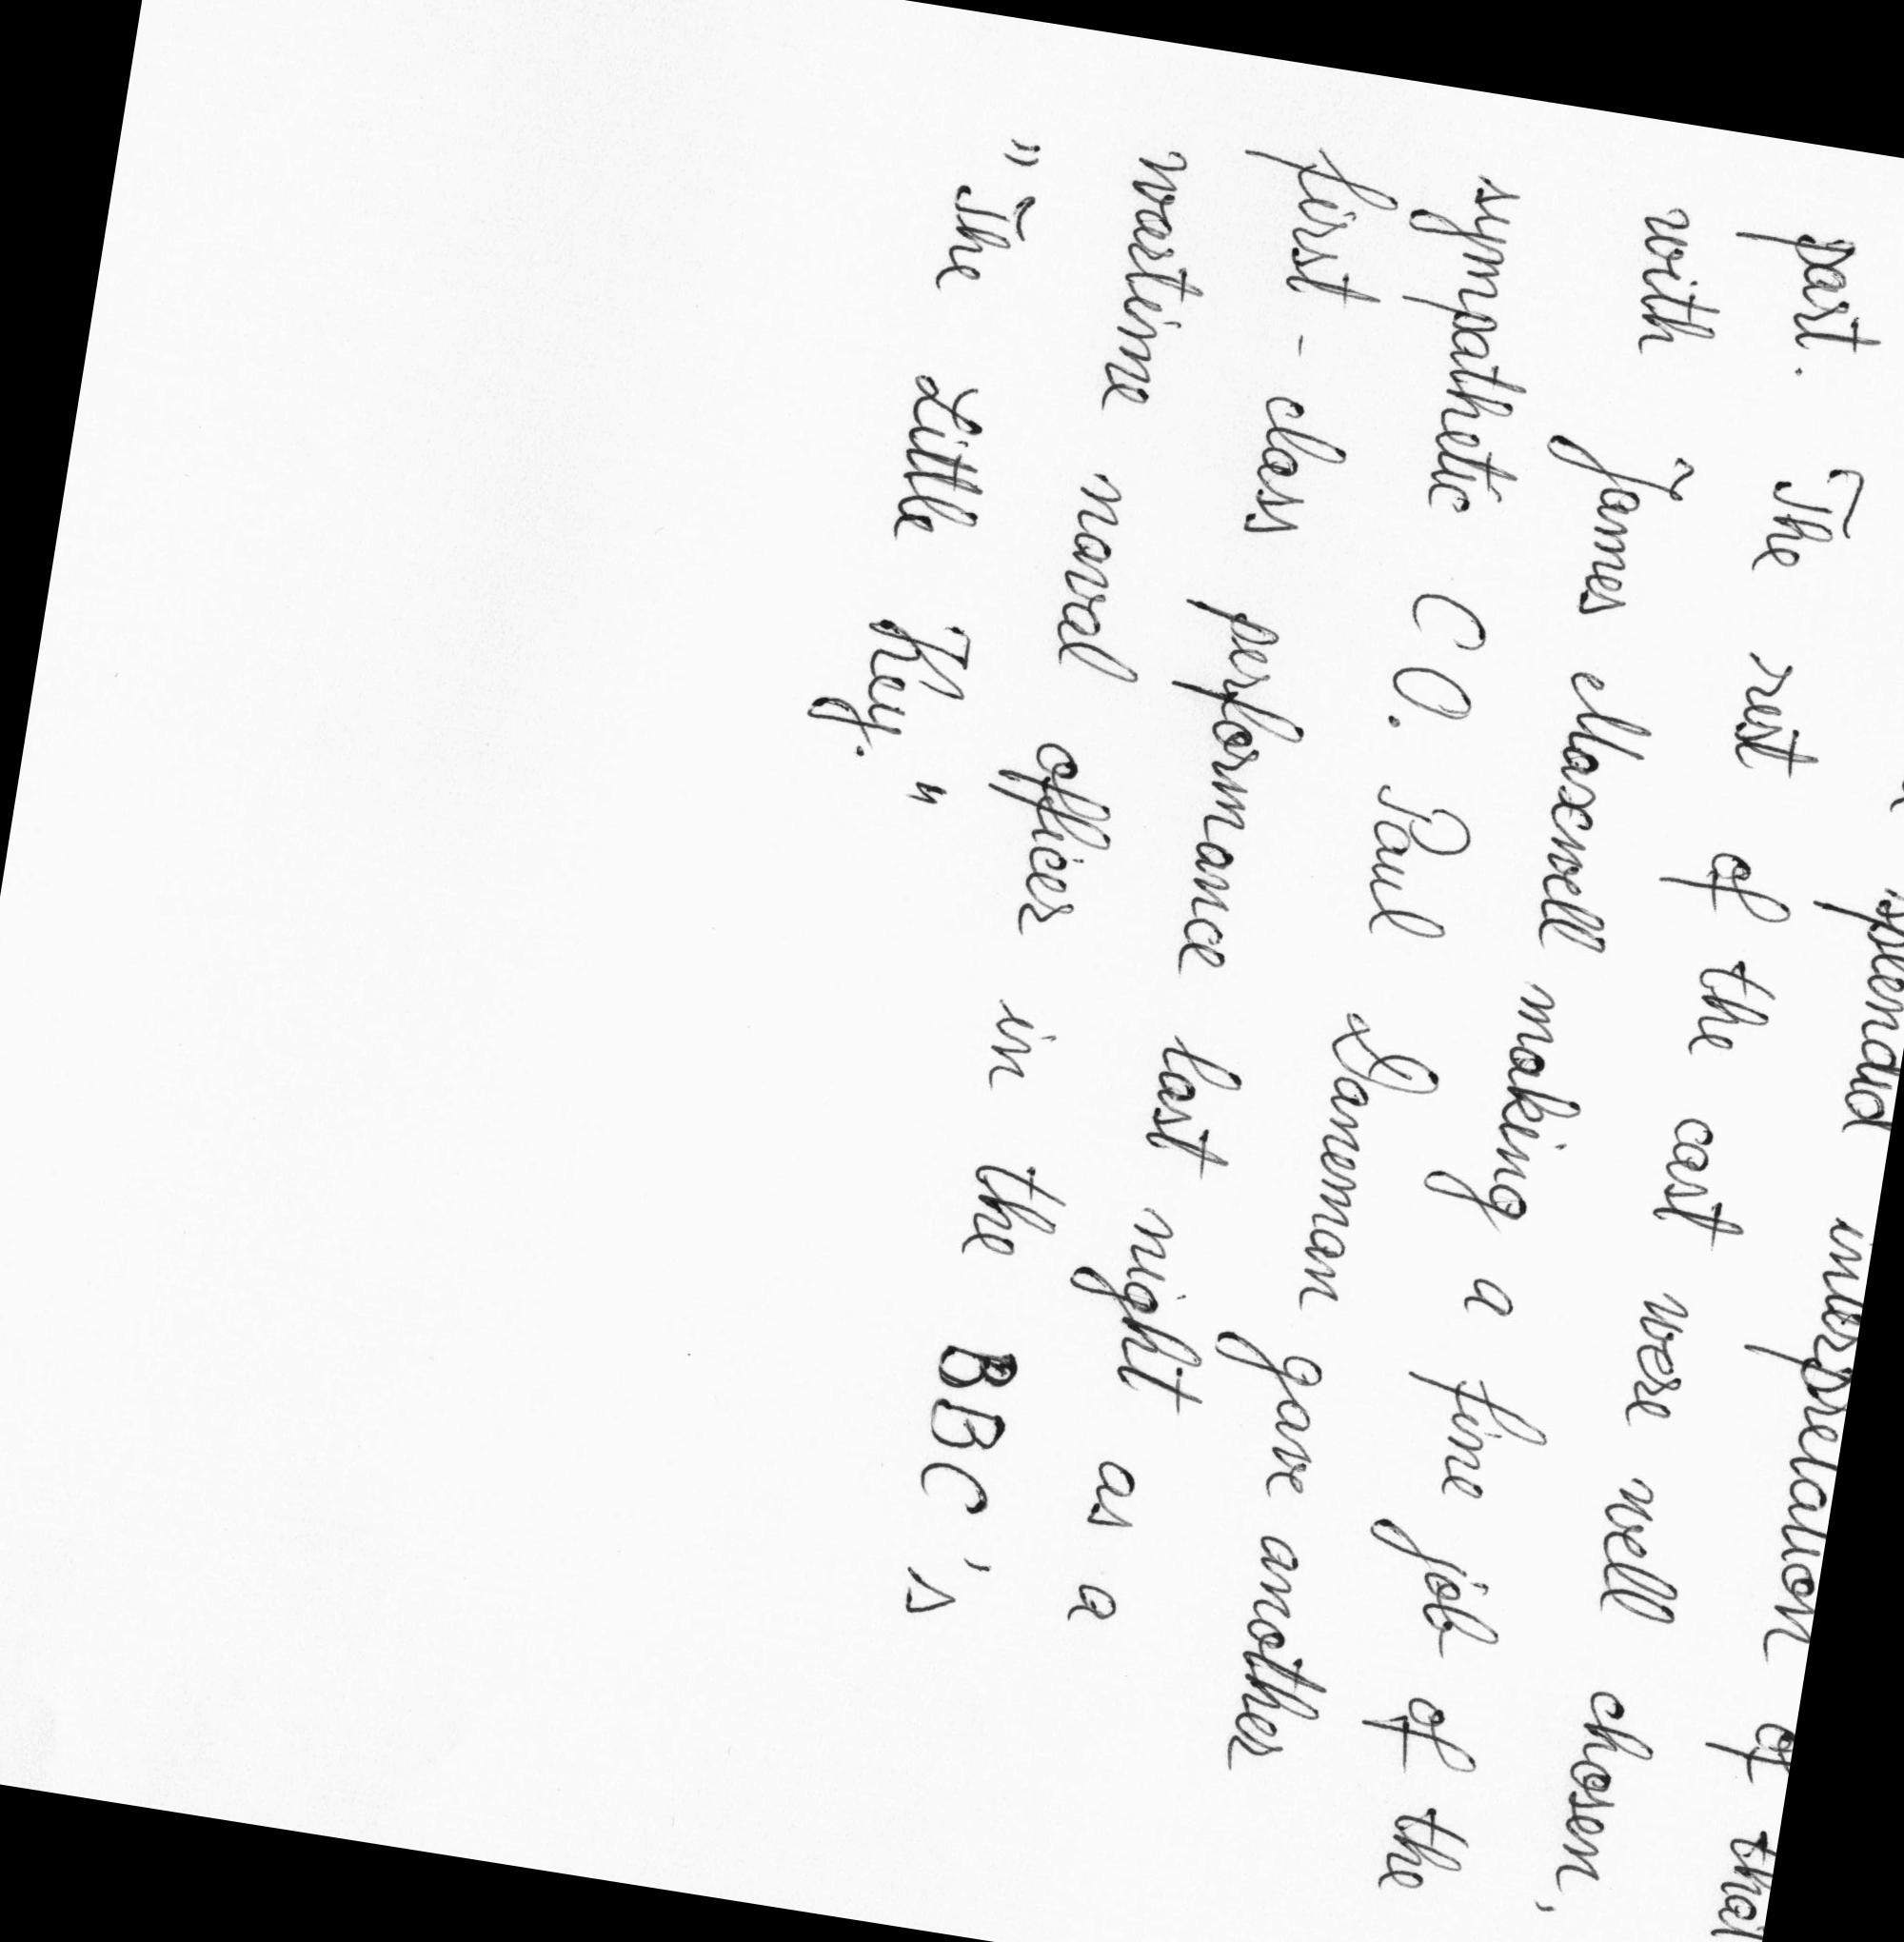 splendid interpretation of that
part. The rest of the cast were well chosen,
with James Maxwell making a fine job of the
sympathetic CO. Paul Daneman gave another
first - class performance last night as a
wartime naval officer in the BBC's
"The Little Key."